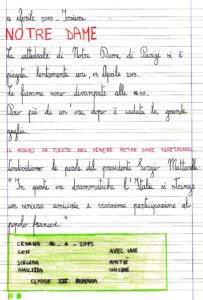 16 Aprile 2019 - Insieme
NOTRE DAME
La cattedrale di Notre Dame di Parigi si è
piegata lentamente ieri, 15 Aprile 2019.
Le fiamme sono divampate alle 18.50.
Poco più di un'ora dopo è caduta la grande
guglia.
IL MONDO HA PIANTO NEL VEDERE NOTRE DAME SGRETOLARSI.
Condividiamo le parole del presidente Sergio Mattarella:
"In queste ore drammatiche l'Italia si stringe
con sincera amicizia e commossa partecipazione al
popolo francese."
CESANA 16-4-2019
CON AVEC UNE
SINCERA AMITIÉ
AMICIZIA SINCÈRE
CLASSE III PRIMARIA